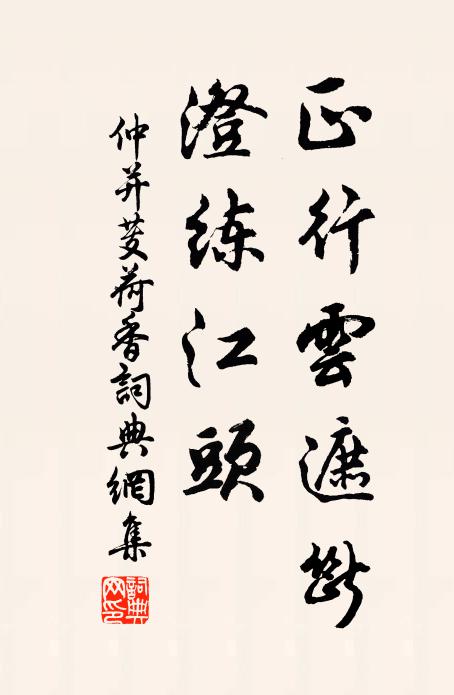 正行雲遮斷
澄练江頭
仲并芰荷香詞典網集
詞典网印